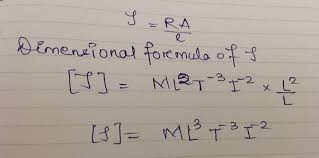 S = RA/l
Dimensional formula of S
[S] = ML²T⁻³I⁻² × L²/L
[S] = ML³T⁻³I⁻²